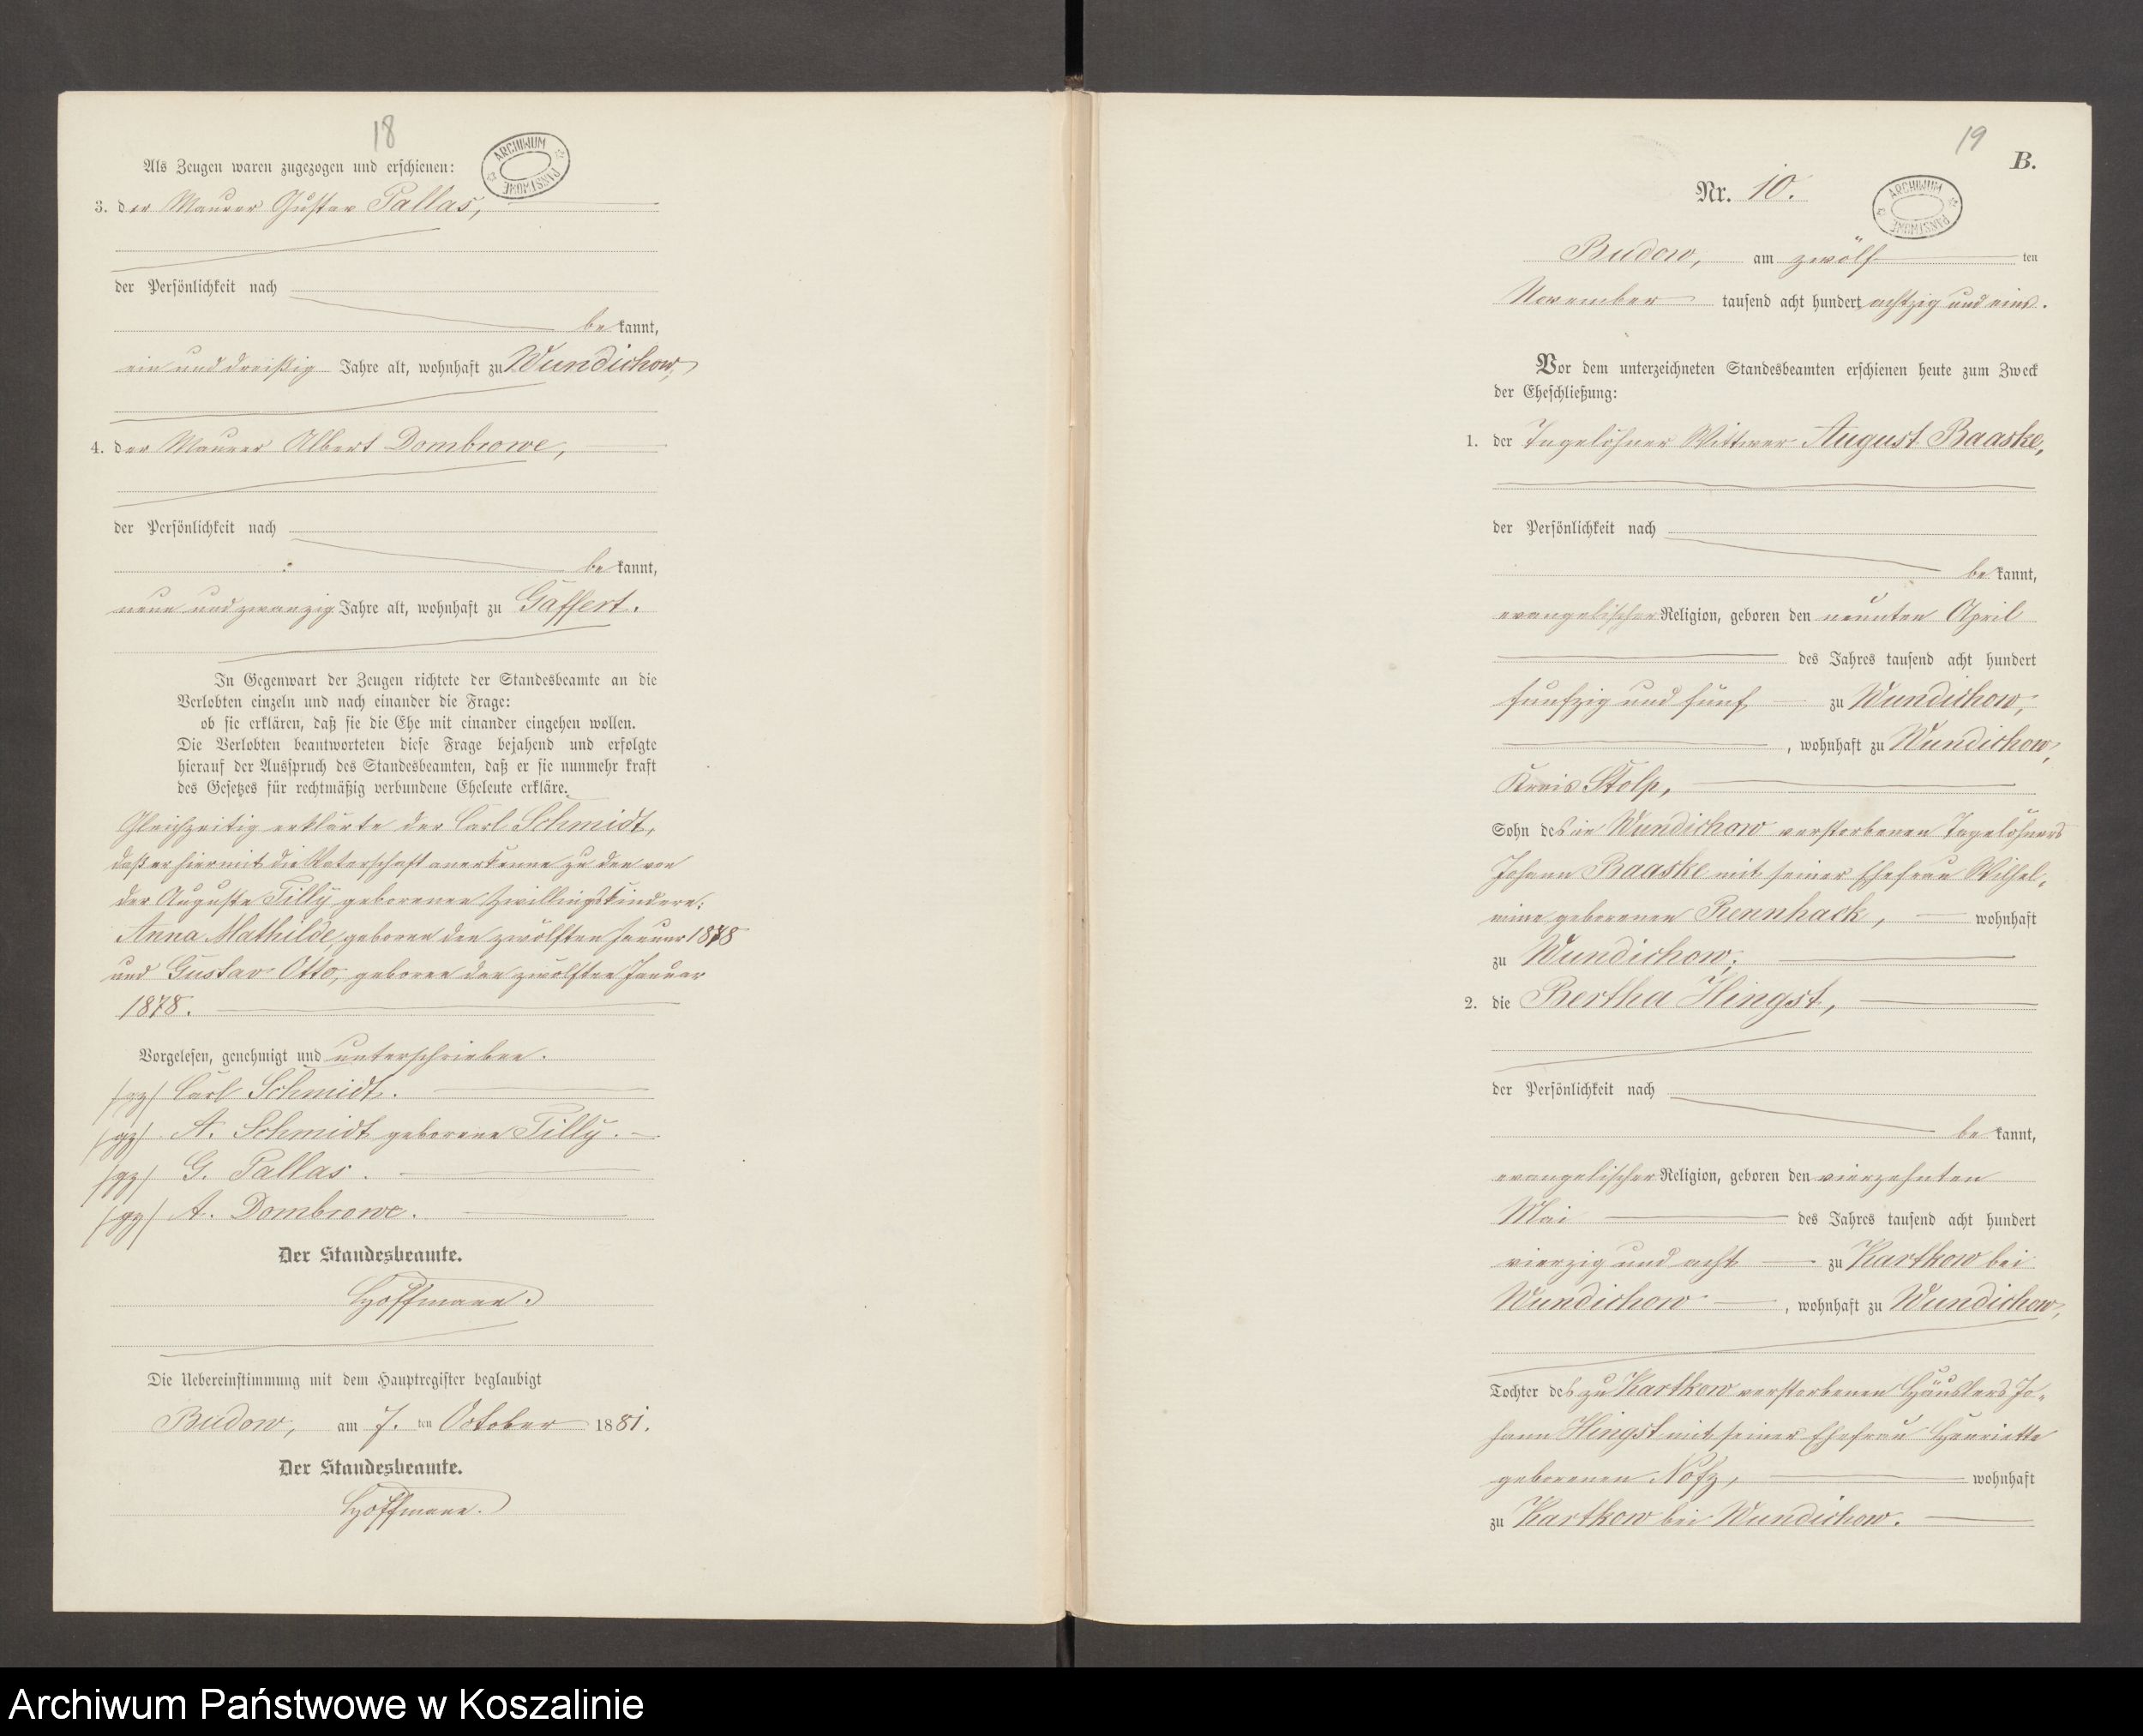 18
ARCHIWUM PAŃSTWOWE
Als Zeugen waren zugezogen und erschienen:
3. der Maurer Gustav Pallas,
der Persönlichkeit nach
bekannt,
ein und dreißig Jahre alt, wohnhaft zu Wundichow,
4. der Maurer Albert Dombrowe,
der Persönlichkeit nach
bekannt,
neun und zwanzig Jahre alt, wohnhaft zu Gaffert.
In Gegenwart der Zeugen richtete der Standesbeamte an die
Verlobten einzeln und nach einander die Frage:
ob sie erklären, daß sie die Ehe mit einander eingehen wollen.
Die Verlobten beantworteten diese Frage bejahend und erfolgte
hierauf der Ausspruch des Standesbeamten, daß er sie nunmehr kraft
des Gesetzes für rechtmäßig verbundene Eheleute erkläre.
Gleichzeitig erklärte der Carl Schmidt,
daß er hiermit die Vaterschaft anerkenne zu den von
der Auguste Tilly geborenen Zwillingskindern:
Anna Mathilde, geboren den zwölften Januar 1878
und Gustav Otto, geboren den zwölften Januar
1878.
Vorgelesen, genehmigt und unterschrieben.
(gz) Carl Schmidt.
(gz) A. Schmidt geborene Tilly.
(gz) G. Pallas.
(gz) A. Dombrowe.
Der Standesbeamte.
Hoffmann.
Die Uebereinstimmung mit dem Hauptregister beglaubigt
Budow, am 7. ten October 1881.
Der Standesbeamte.
Hoffmann.
19
B.
Nr. 10.
ARCHIWUM PAŃSTWOWE
Budow, am zwölf ten
November tausend acht hundert achtzig und eins.
Vor dem unterzeichneten Standesbeamten erschienen heute zum Zweck
der Eheschließung:
1. der Tagelöhner Wittwer August Baaske,
der Persönlichkeit nach
bekannt,
evangelischer Religion, geboren den neunten April
des Jahres tausend acht hundert
fünfzig und fünf zu Wundichow,
, wohnhaft zu Wundichow,
Kreis Stolp,
Sohn des in Wundichow verstorbenen Tagelöhners
Johann Baaske mit seiner Ehefrau Wilhel-
mine geborenen Rennhack, wohnhaft
zu Wundichow.
2. die Bertha Hingst,
der Persönlichkeit nach
bekannt,
evangelischer Religion, geboren den vierzehnten
Mai des Jahres tausend acht hundert
vierzig und acht zu Kartkow bei
Wundichow, wohnhaft zu Wundichow,
Tochter des zu Kartkow verstorbenen Häuslers Jo-
hann Hingst mit seiner Ehefrau Henriette
geborenen wohnhaft
zu Kartkow bei Wundichow.
Archiwum Państwowe w Koszalinie